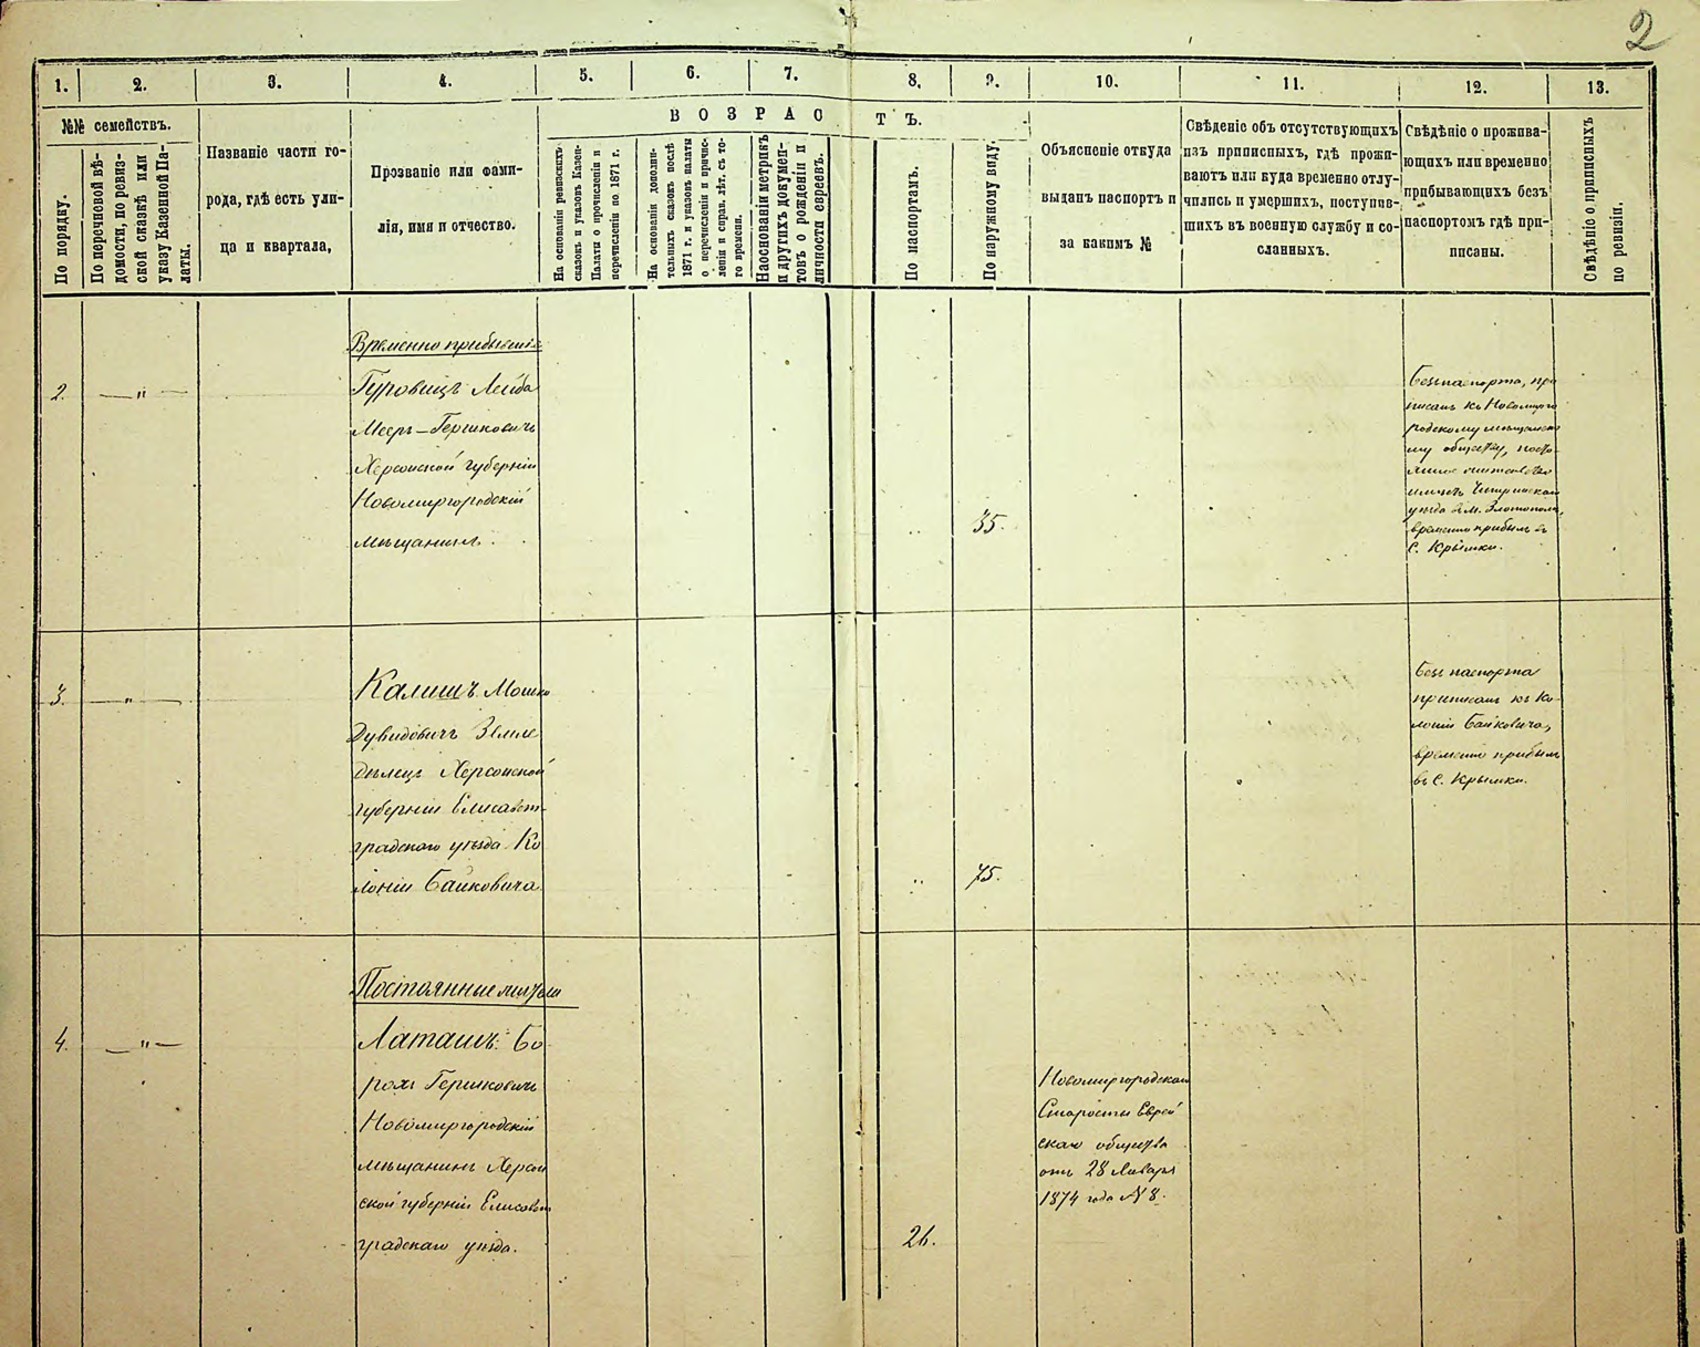 2
1. 2. 3. 4. 5. 6. 7. 8. 9. 10. 11. 12. 13.
№№ семействъ.
По порядку.
По перечновой вѣ-
домости, по ревиз-
ской сказкѣ или
указу Казенной Па-
латы.
Названіе части го-
рода, гдѣ есть ули-
ца и квартала,
Прозваніе или фами-
лія, имя и отчество.
ВОЗРАСТЪ.
На основаніи ревизскихъ
сказокъ и указовъ Казен-
Палаты о прочисленіи и
перечисленіи по 1871 г.
На основаніи дополни-
тельныхъ сказокъ послѣ
1871 г. и указовъ палаты
о перечисленіи и причис-
леніи и справ. лѣт. съ то-
го времени.
Наоснованіи метрикъ
и другихъ докумен-
товъ о рожденіи и
личности евреевъ.
По паспортамъ.
По наружному виду.
Объясненіе откуда
выданъ паспортъ и
за какимъ №
Свѣденіе объ отсутствующихъ
изъ приписныхъ, гдѣ прожи-
ваютъ или куда временно отлу-
чились и умершихъ, поступив-
шихъ въ военную службу и со-
сланныхъ.
Свѣдѣніе о прожива-
ющихъ или временно
прибывающихъ безъ
паспортомъ гдѣ при-
писаны.
Свѣдѣніе о приписныхъ
по ревизіи.
Временно прибывшіе
2. — " —
Гуровицъ Лейба
Мееръ-Гершковичъ
Херсонской губерніи
Новомиргородскій
мѣщанинъ.
35.
Безъ паспорта, при
писанъ къ Новомирго
родскому мѣщанско
му обществу, посто-
янное жительство
имѣетъ Чигиринскаго
уѣзда в м. Златополѣ,
временно прибылъ въ
С. Крымки.
3. — " —
Калишъ Мошко
Дувидовичъ Земле
дѣлецъ Херсонской
губерніи Елисавет-
градскаго уѣзда Ко
лоніи Байковича
75.
Безъ паспорта
приписанъ къ Ко
лоніи Байковича,
временно прибылъ
въ С. Крымки.
Постоянные жители
4. — " —
Латашъ Бо
рохъ Гершковичъ
Новомиргородскій
мѣщанинъ Херсон
ской губерніи Елисавет
градскаго уѣзда.
26.
Новомиргородскаго
Старосты Еврей
скаго общества
отъ 28 Января
1874 года № 8.